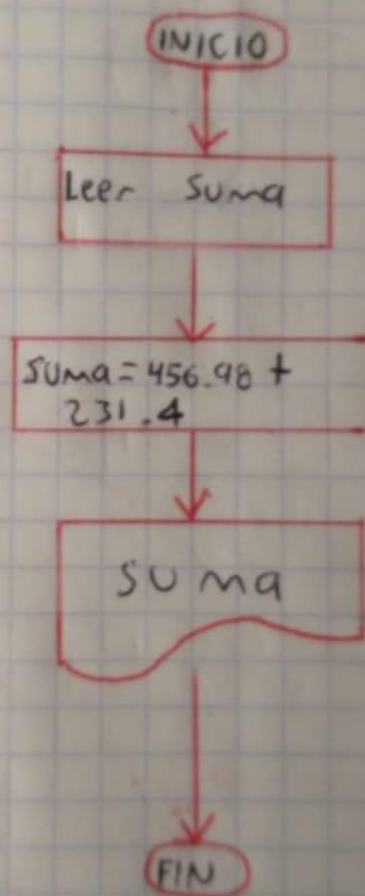 INICIO
Leer suma
suma = 456.98 +
231.4
suma
FIN